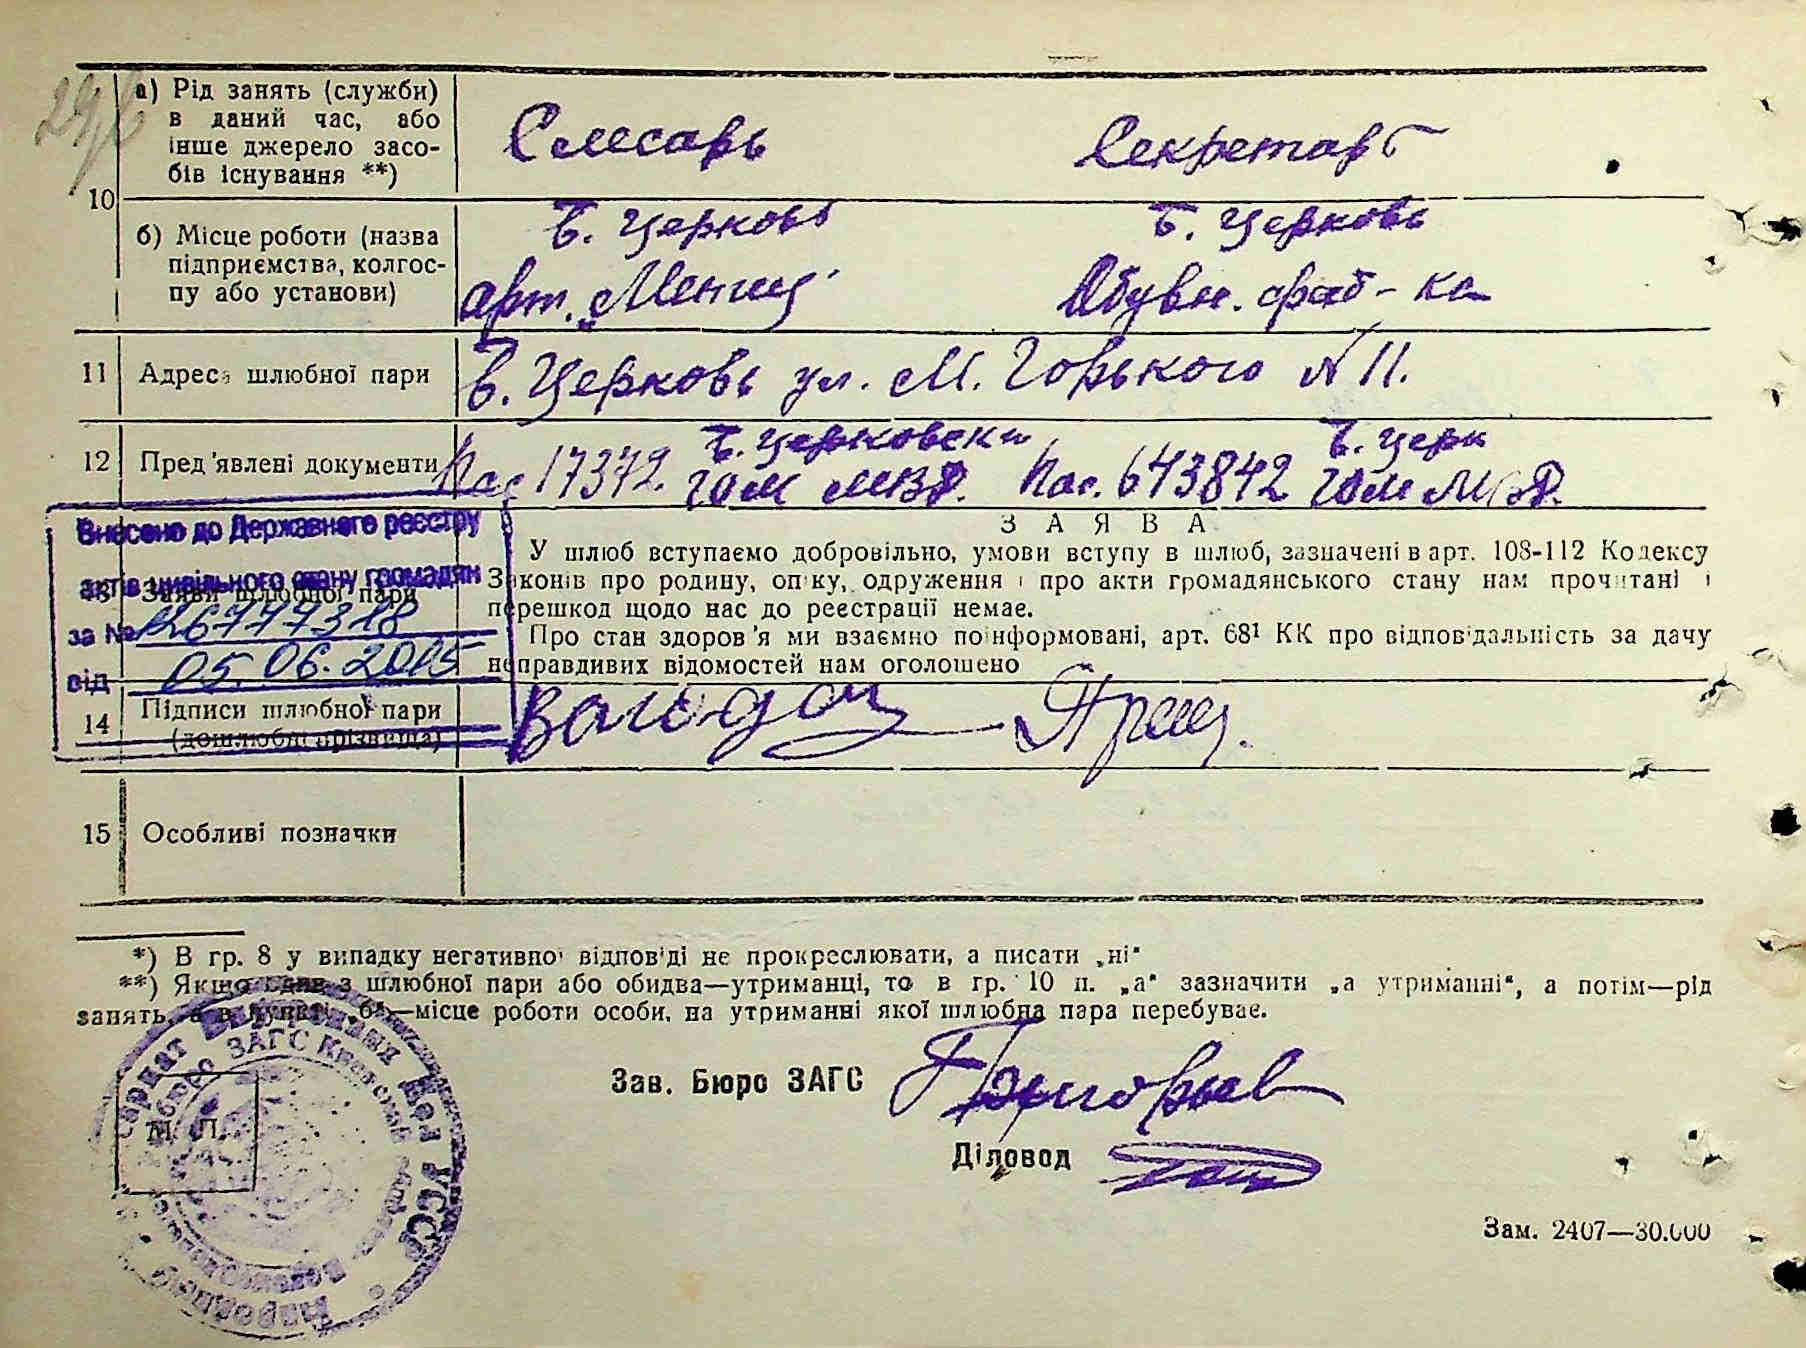 а) Рід занять (служби)
в даний час, або
інше джерело засо-
бів існування **)
Слесарь
Секретарь
10
б) Місце роботи (назва
підприємства, колгос-
пу або установи)
Б. Церковь
арт.
Б. Церковь
Обувн. фаб-ка
11 Адреса шлюбної пари
Б. Церковь ул. М. Горького № 11.
12 Пред'явлені документи
Пас 17372. Б. Церковски
ГОМ МВД.
Пас. 643842 Б. Церк
ГОМ МВД.
Внесено до Державного реєстру
актів цивільного стану громадян
за № 126777318
від 05.06.2015
13 Заяви шлюбної пари
ЗАЯВА
У шлюб вступаємо добровільно, умови вступу в шлюб, зазначені в арт. 108-112 Кодексу
Законів про родину, опіку, одруження і про акти громадянського стану нам прочитані і
перешкод щодо нас до реєстрації немає.
Про стан здоров'я ми взаємно поінформовані, арт. 68¹ КК про відповідальність за дачу
неправдивих відомостей нам оголошено
14 Підписи шлюбної пари
(дошлюбні прізвища)
15 Особливі позначки
*) В гр. 8 у випадку негативної відповіді не прокреслювати, а писати „ні"
**) Якщо один з шлюбної пари або обидва—утриманці, то в гр. 10 п. „а" зазначити „а утриманні", а потім—рід
занять, а в пункті „б"—місце роботи особи, на утриманні якої шлюбна пара перебуває.
М. П.
Зав. Бюро ЗАГС
Діловод
Зам. 2407—30.000